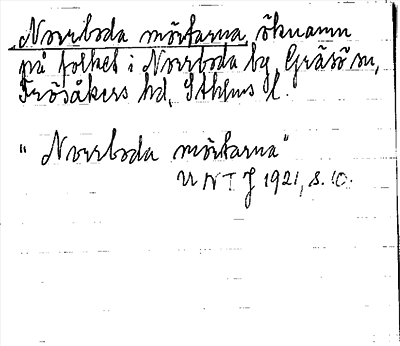 Norrboda mörtarna, öknamn
på folket i Norrboda by, Gräsö sn,
Frösåkers hd, Sthlms l.
"Norrboda mörtarna"
UNT J 1921, s. 10.